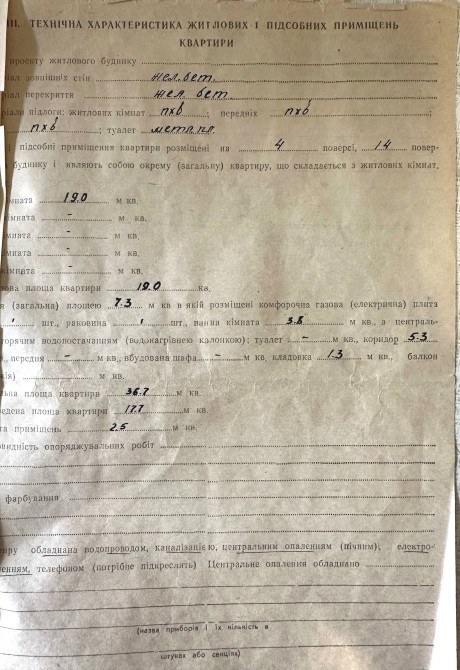 III. ТЕХНІЧНА ХАРАКТЕРИСТИКА ЖИТЛОВИХ І ПІДСОБНИХ ПРИМІЩЕНЬ
КВАРТИРИ
проекту житлового будинку
зовнішніх стін жел.бет.
перекриття жел. бет.
підлоги: житлових кімнат пхв ; передніх пхв ;
пхв ; туалет метл.пл.
підсобні приміщення квартири розміщені на 4 поверсі, 14 повер-
будинку і являють собою окрему (загальну) квартиру, що складається з житлових кімнат,
мната 19.0 м кв.
імната - м кв.
імната - м кв.
імната - м кв.
імната - м кв.
ова площа квартири 19.0 кв.
(загальна) площею 7.3 м кв в якій розміщені комфорочна газова (електрична) плита
шт., раковина 1 шт., ванна кімната 3.8 м кв., а централь-
горячим водопостачанням (водонагрівнею колонкою); туалет - м кв., коридор 5.3
передня - м кв., вбудована шафа - м кв, кладовка 1.3 м кв., балкон
м кв.
площа квартири 36.7 м кв.
едена площа квартири 17.7 м кв.
та приміщень 2.5 м кв.
овидність опоряджувальних робіт
фарбування
иру обладнана водопроводом, каналізацією, центральним опаленням (пічним), електро-
енням, телефоном (потрібне підкреслять) Центральне опалення обладнано
(назва приборів і їх кількість в
штуках або секціях)